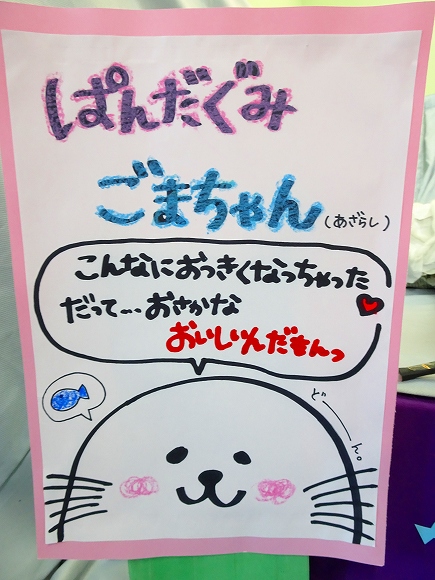 ぱんだぐみ
ごまちゃん(あざらし)
こんなにおっきくなっちゃった
だって…おさかな
おいしいんだもんっ
ど――ん。